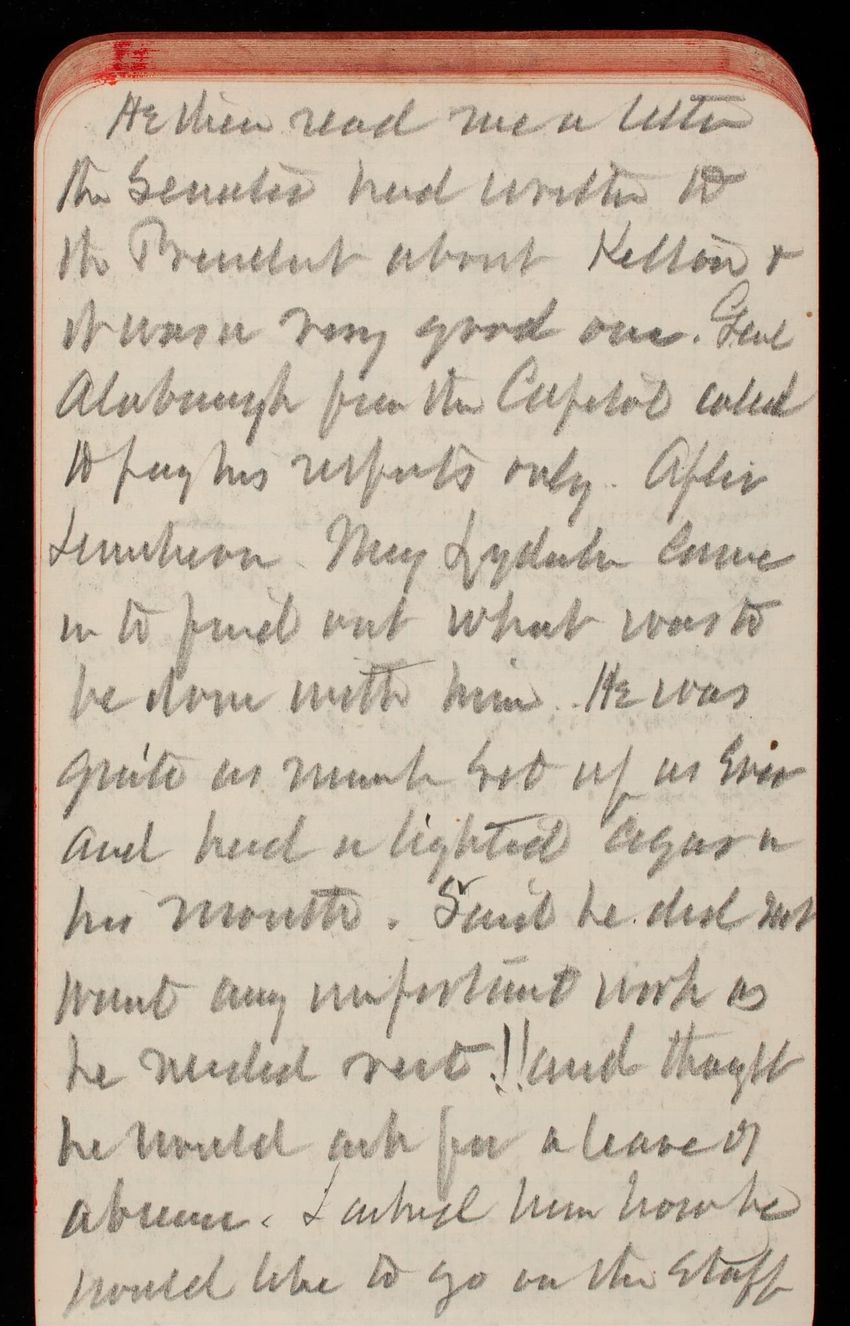 He then read me a letter
the Senator had written to
the President about Kelton &
it was a very good one. Genl
Alabaugh from the Capitol called
to pay his respects only. After
Luncheon Maj Lydecker came
in to find out what was to
be done with him. He was
quite as much Got up as Ever
and had a lighted Cigar in
his mouth. Said he did not
want any important work as
he needed rest!! and thought
he would ask for a leave of
absence. I asked him how he
would like to go on the Staff